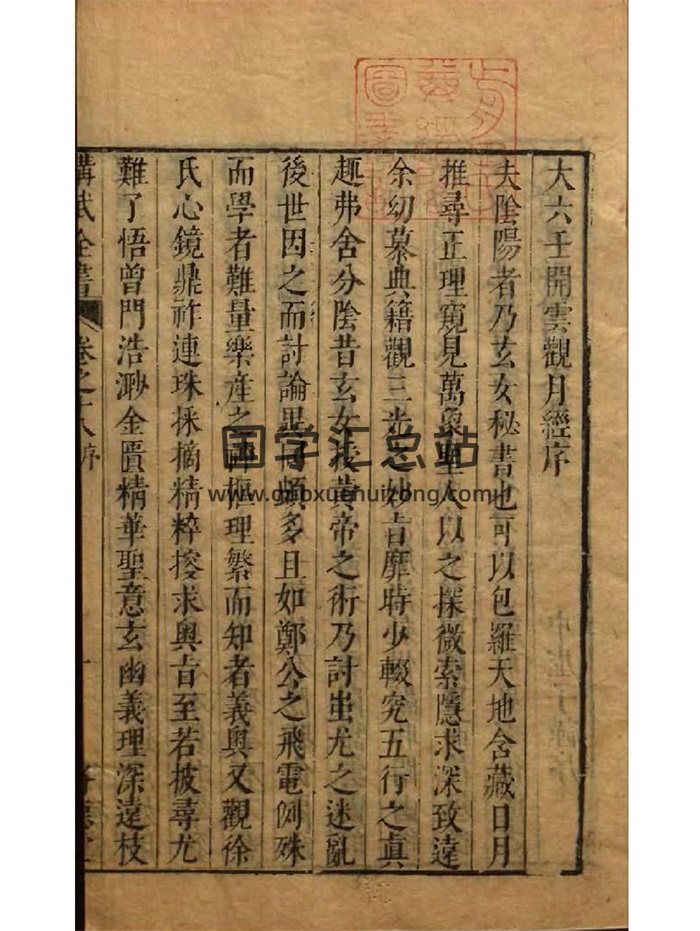 大六壬開雲觀月經序
夫陰陽者乃玄女秘書也可以包羅天地含藏日月
推尋正理窺見萬象聖人以之探微索隱求深致遠
余幼慕典籍觀三光之妙旨靡時少輟究五行之真
趣弗舍分陰昔玄女授黃帝之術乃討蚩尤之迷亂
後世因之而討論異同頗多且如鄭公之飛電例殊
而學者難量樂產之神樞理繁而知者義奧又觀徐
氏心鏡鼎祚連珠採摘精粹搜求奧旨至若披尋尤
難了悟曾門浩渺金匱精華聖意玄幽義理深遠枝
講武全書 卷之十八序
国学汇总站
www.guoxuehuizong.com